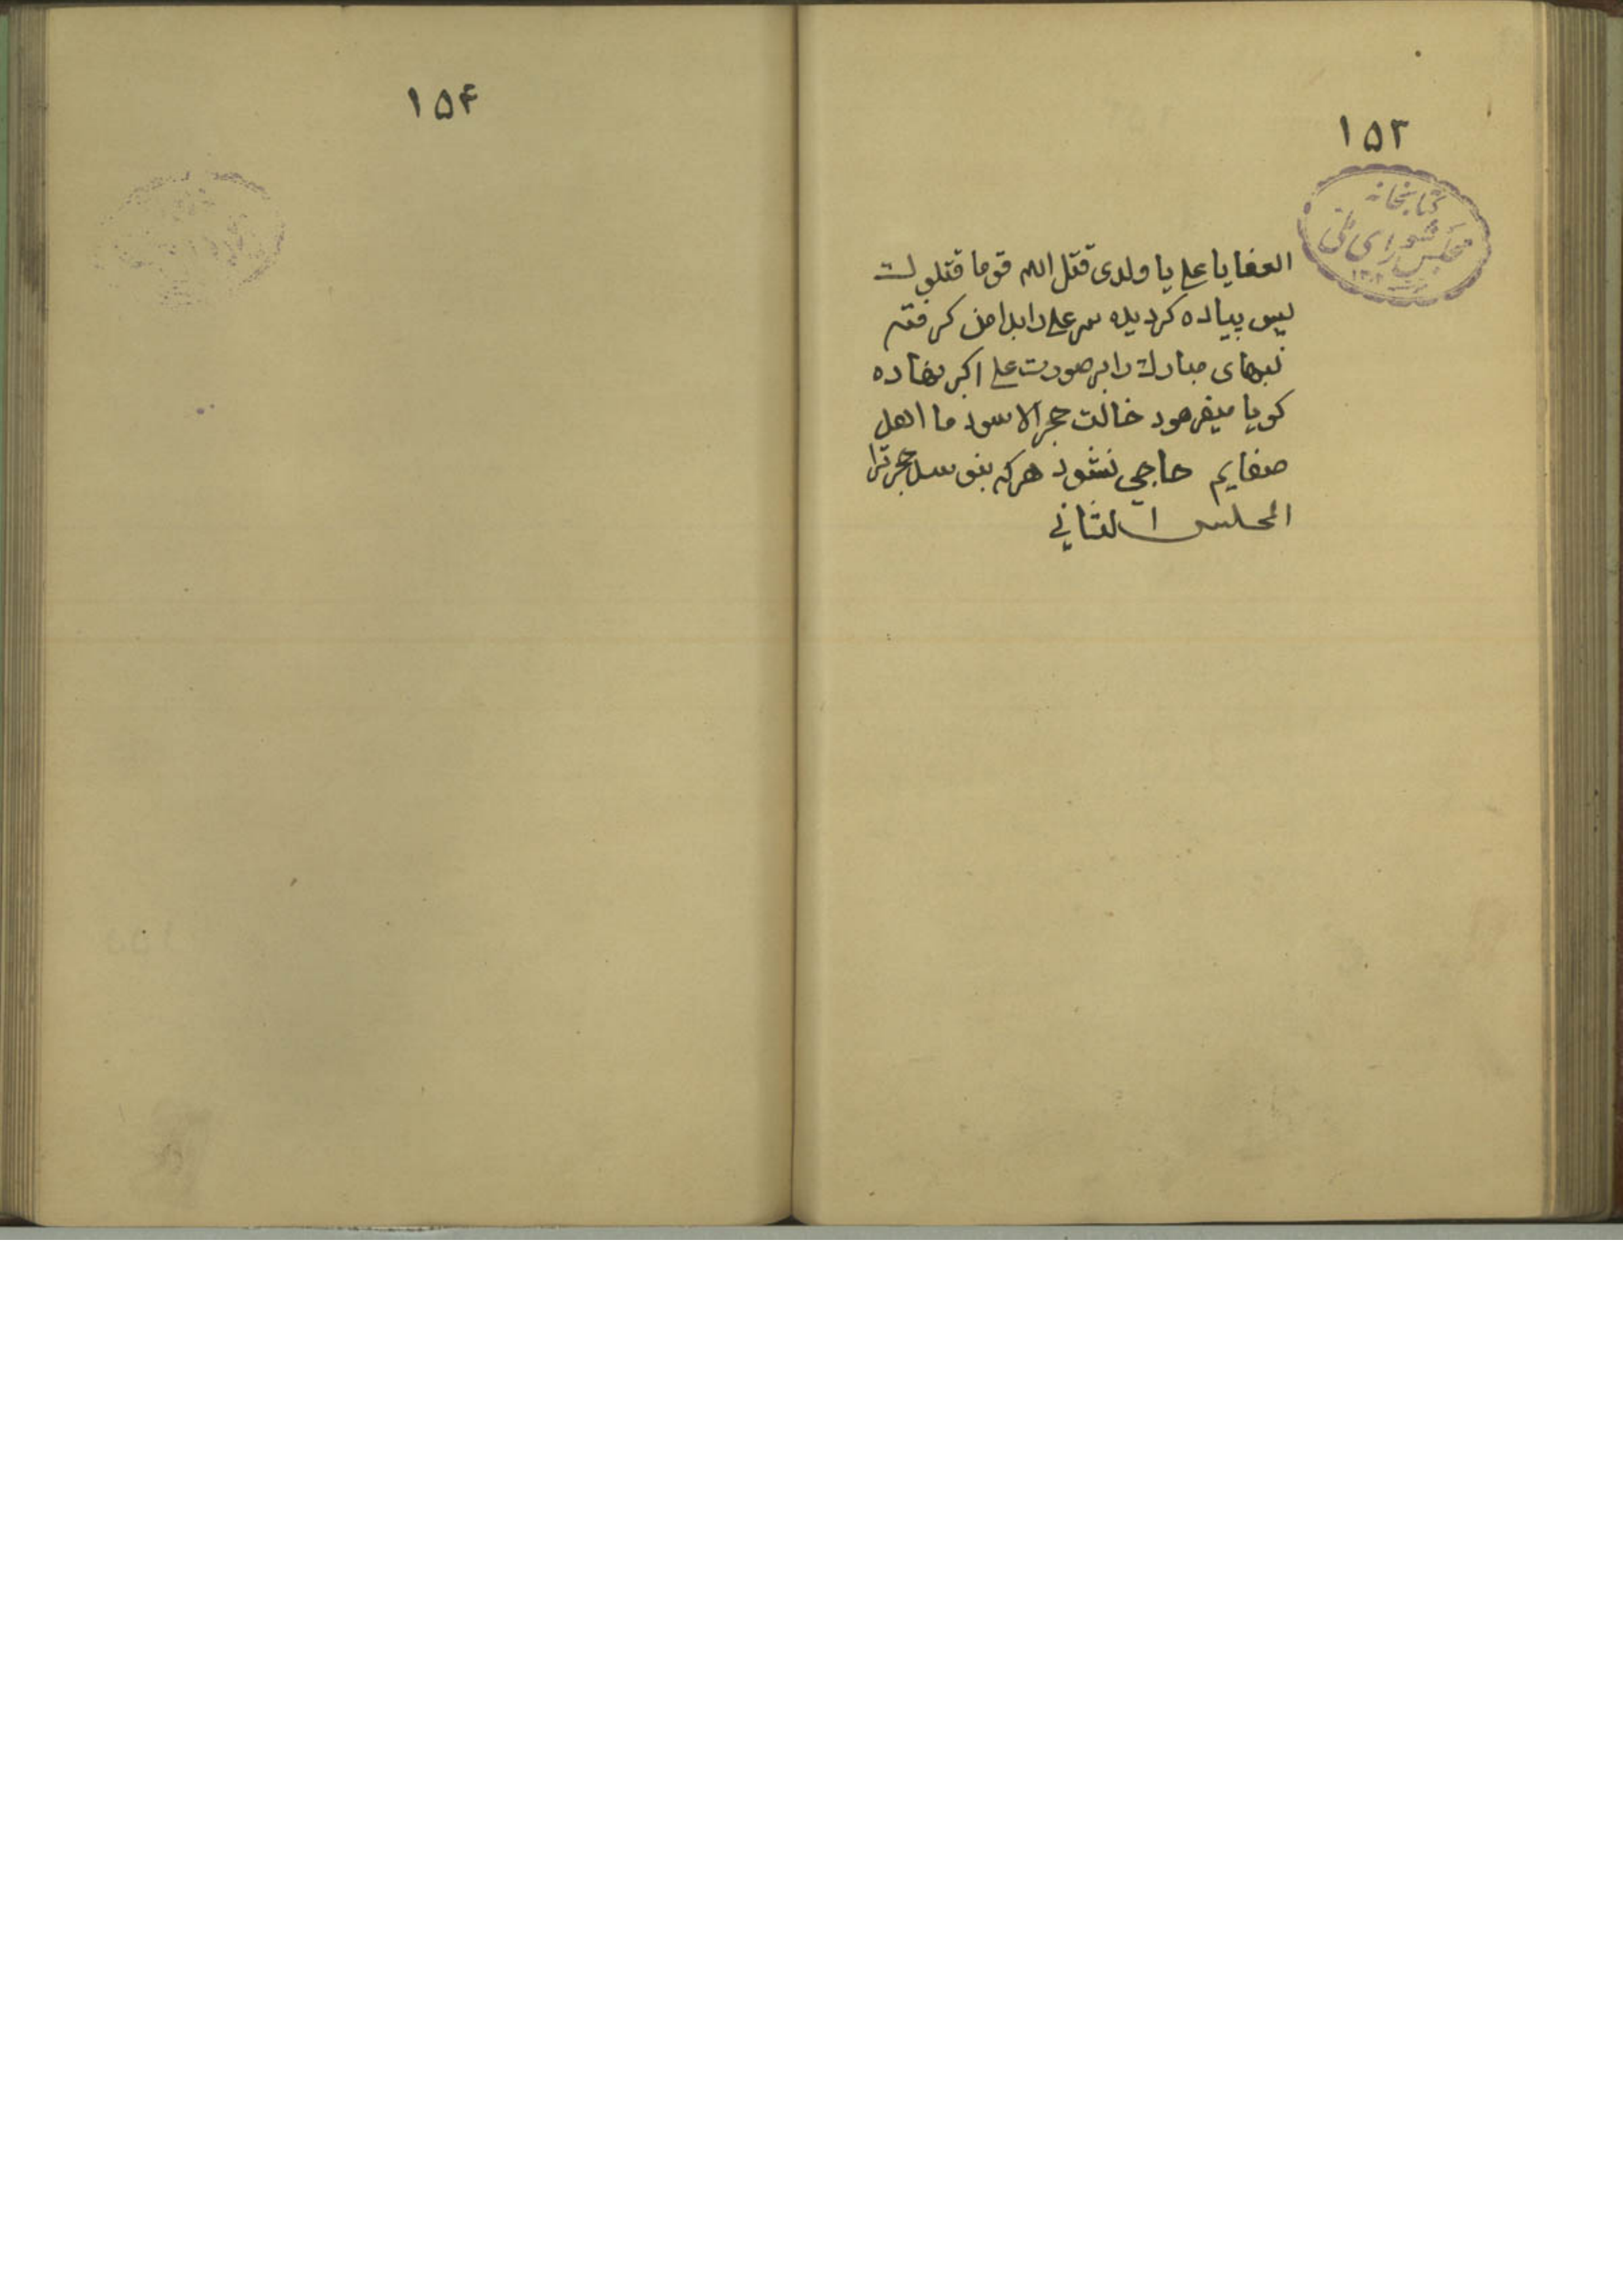 ۱۵۳
کتابخانه
مجلس شورای ملی
العفا یا علی یا ولدی قتل الله قوما قتلوك
پس پیاده کردیده سر علی را بدامن کرفته
لبهای مبارك را بر صورت علی اکبر نهاده
کویا میفرمود خالت حجر الاسود ما اهل
صفایم حاجی نشود هر که ببوسد حجر ترا
المجلس الثانی
۱۵۴